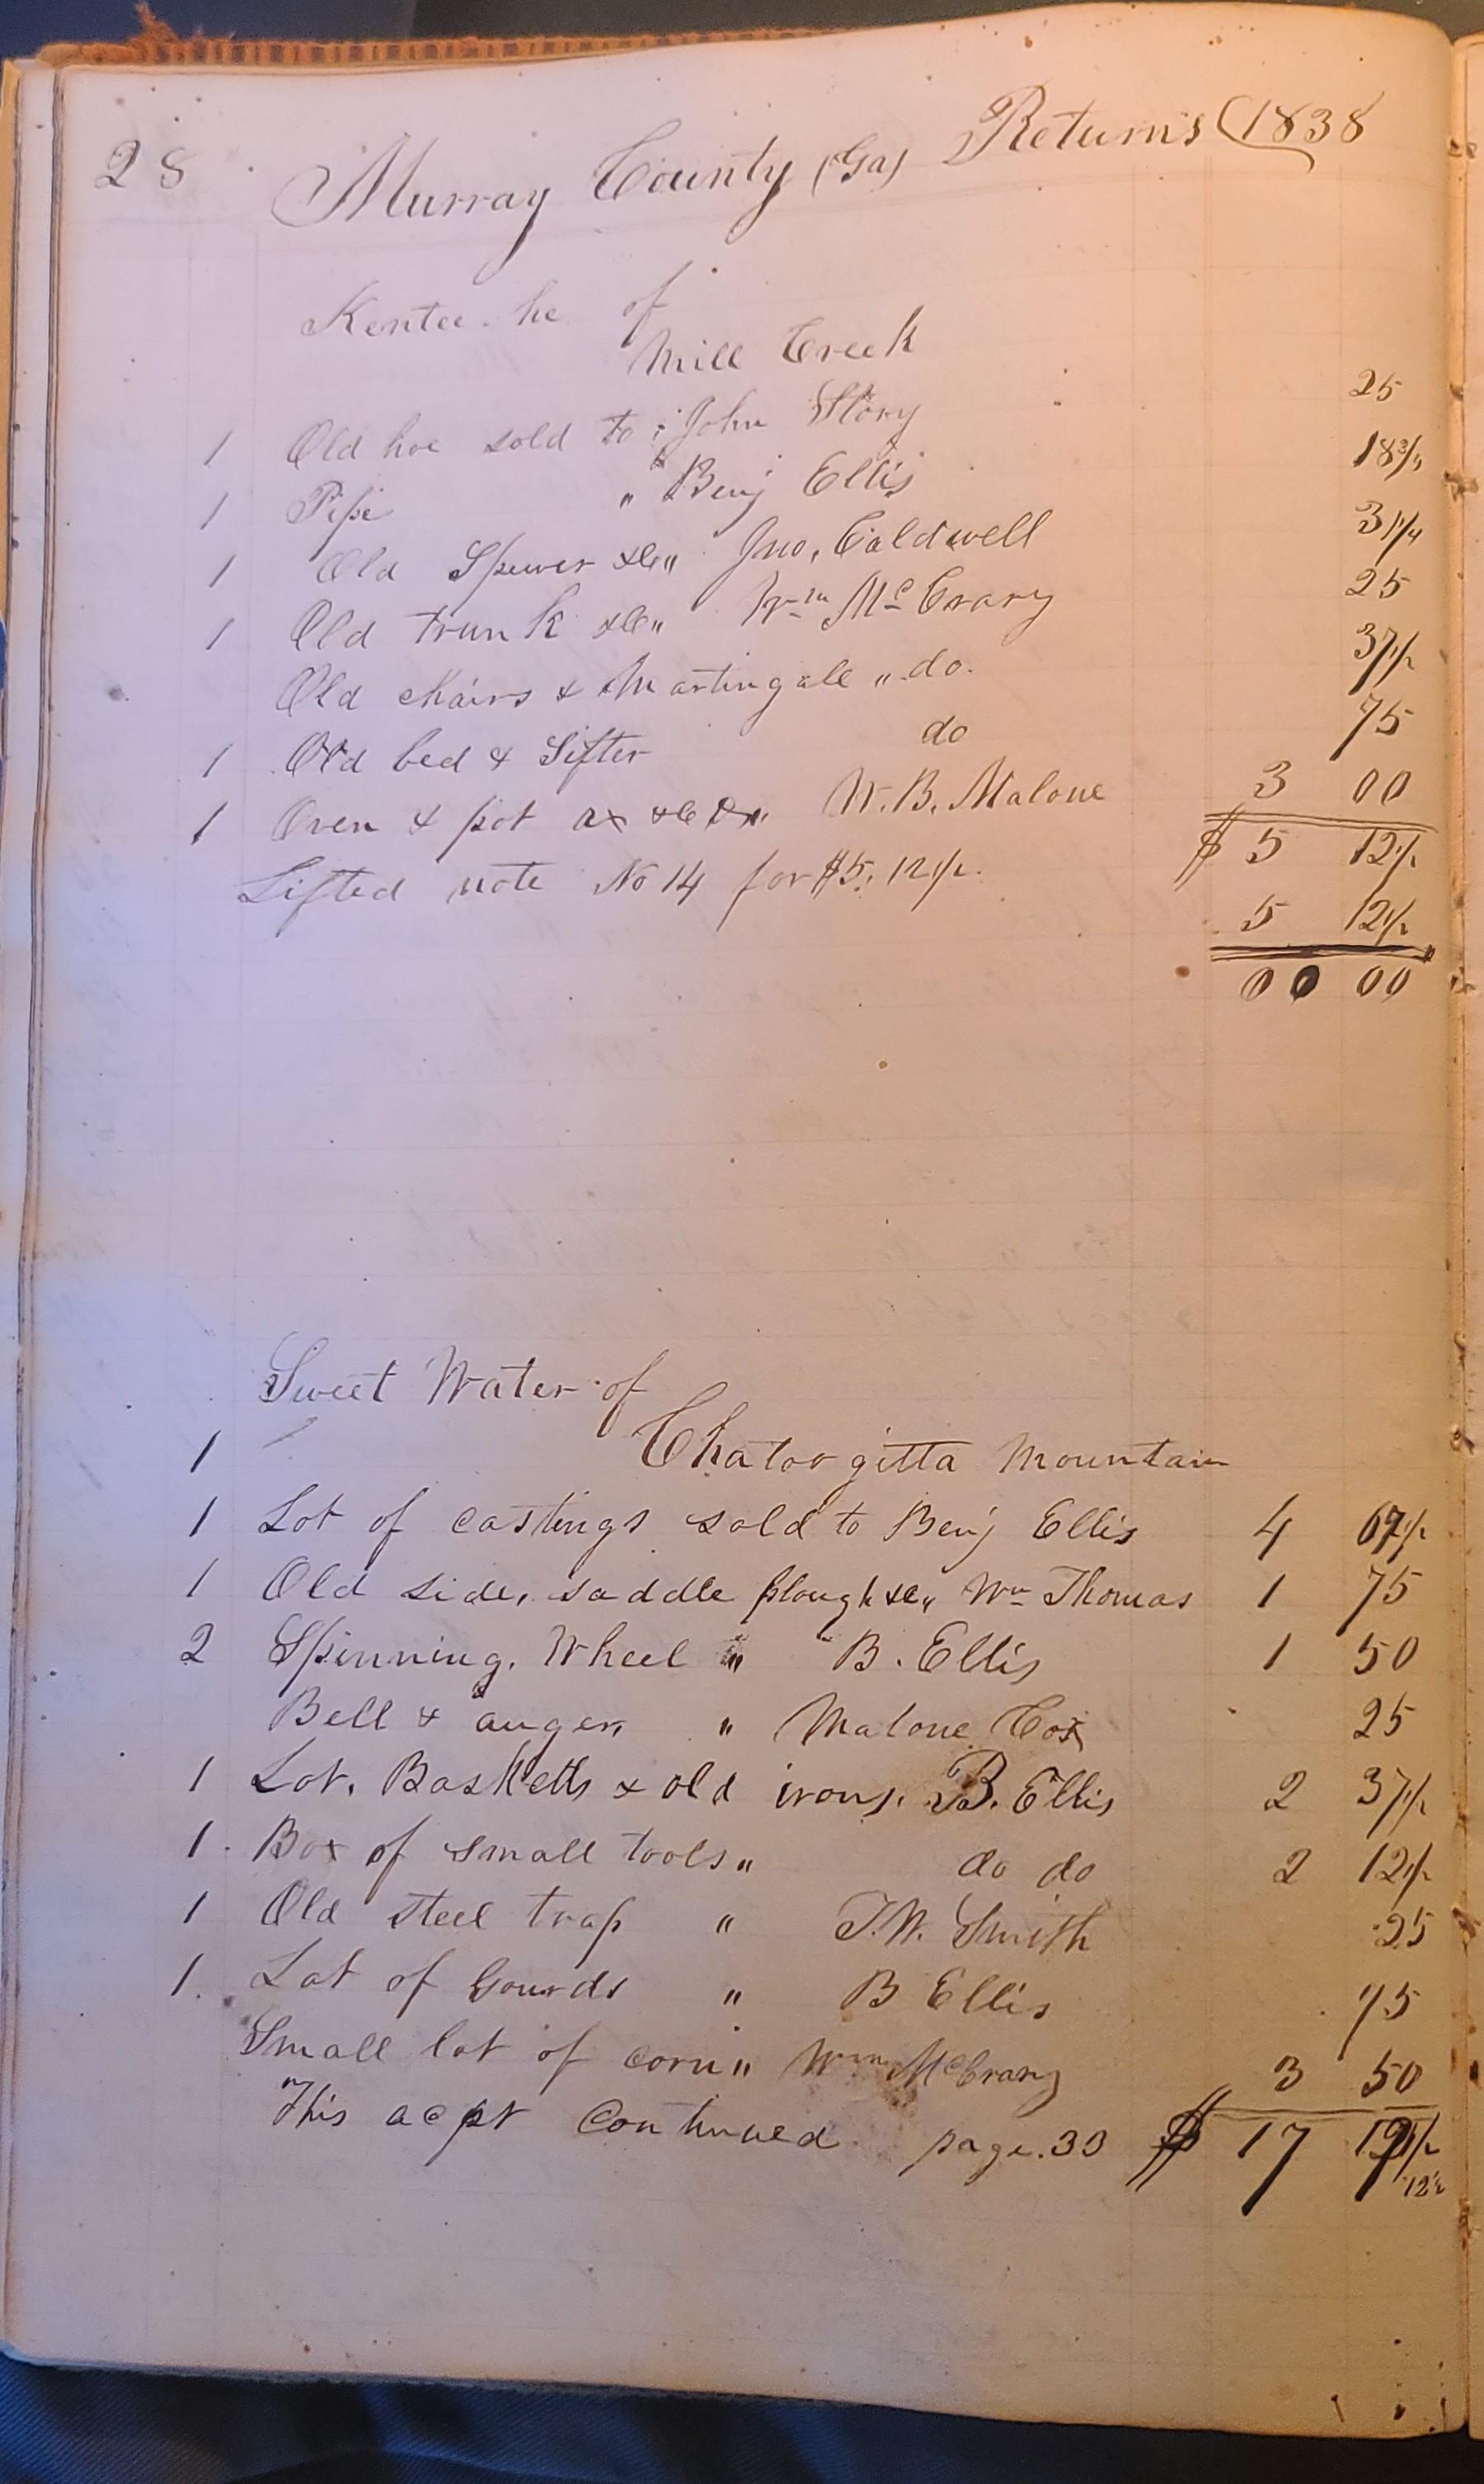 28 Murray County (Ga) Returns (1838
Kentee. he of
Mill Creek
1 Old hoe sold to John Story 25
1 Pipe " Benj Ellis 18 3/4
1 Old &c " Jno, Caldwell 31 1/4
1 Old trunk &c " Wm McCrary 25
Old chairs & Martingale " do. 37 1/2
1 Old bed & Sifter do 75
1 Oven & pot ax &c " W. B. Malone 3 00
$ 5 12 1/2
Lifted note No 14 for $5. 12 1/2. 5 12 1/2
00 00
Sweet Water of
1 Chatoogitta Mountain
1 Lot of castings sold to Benj Ellis 4 67 1/2
1 Old side, saddle plough &c " Wm Thomas 1 75
2 Spinning. Wheel " B. Ellis 1 50
Bell & auger, " Malone Cox 25
1 Lot. Basketts & old irons. B. Ellis 2 37 1/2
1. Box of small tools " do do 2 12 1/2
1 Old steel trap " T. W. Smith 25
1. Lot of Gourds " B Ellis 75
Small lot of corn " Wm McCrary 3 50
This acpt Continued page. 33 $ 17 1/2
12 1/2